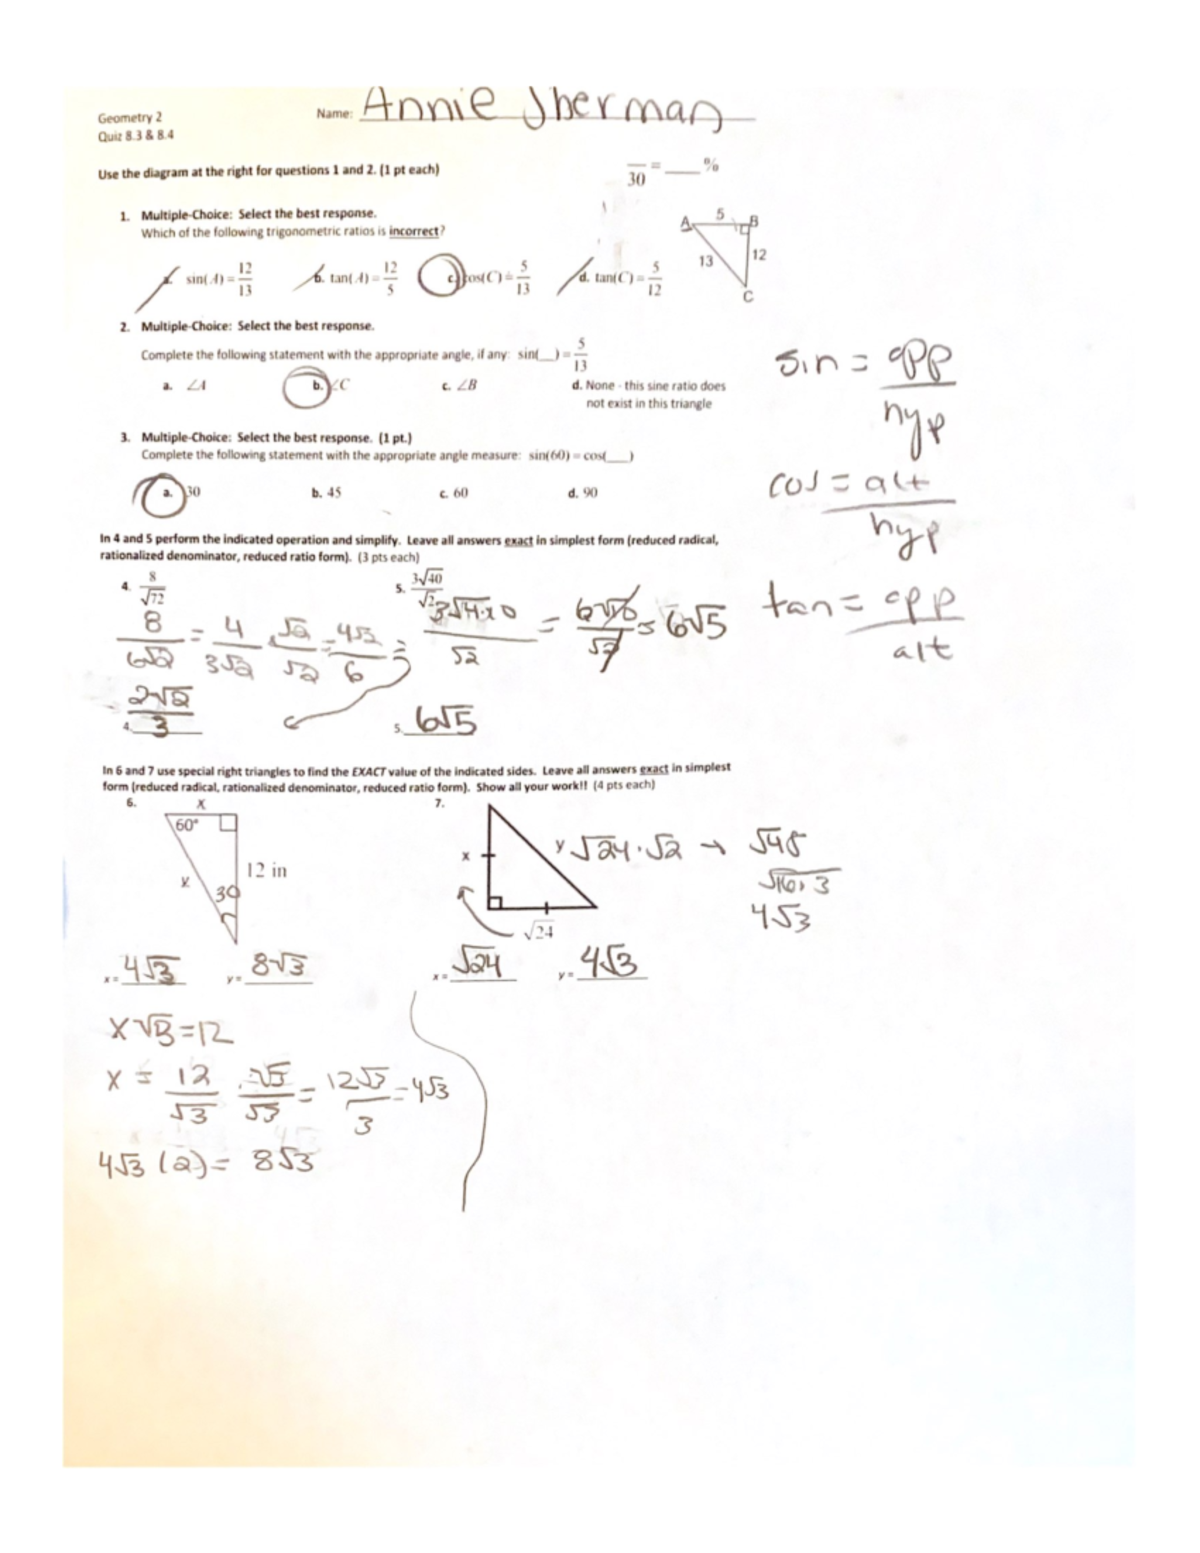 Geometry 2
Name: Annie Sherman
Quiz 8.3 & 8.4
Use the diagram at the right for questions 1 and 2. (1 pt each)
/30 = ___ %
1. Multiple-Choice: Select the best response.
Which of the following trigonometric ratios is incorrect?
A 5 B
13 12
C
a. sin(A) = 12/13 b. tan(A) = 12/5 c. cos(C) = 5/13 d. tan(C) = 5/12
2. Multiple-Choice: Select the best response.
Complete the following statement with the appropriate angle, if any: sin(__) = 5/13
a. ∠A b. ∠C c. ∠B d. None - this sine ratio does
not exist in this triangle
sin = opp/hyp
3. Multiple-Choice: Select the best response. (1 pt.)
Complete the following statement with the appropriate angle measure: sin(60) = cos(___)
a. 30 b. 45 c. 60 d. 90
cos = alt/hyp
In 4 and 5 perform the indicated operation and simplify. Leave all answers exact in simplest form (reduced radical,
rationalized denominator, reduced ratio form). (3 pts each)
4. 8/√72 5. 3√40/√2
8/6√2 = 4/3√2 · √2/√2 = 4√2/6 =
3√4·10/√2 = 6√10/√2 = 6√5
tan = opp/alt
4. 2√2/3 5. 6√5
In 6 and 7 use special right triangles to find the EXACT value of the indicated sides. Leave all answers exact in simplest
form (reduced radical, rationalized denominator, reduced ratio form). Show all your work!! (4 pts each)
6. x 7.
60°
12 in
y 30
x y √24·√2 → √48
√16·3
4√3
√24
x = 4√3 y = 8√3 x = √24 y = 4√3
x√3 = 12
x = 12/√3 · √3/√3 = 12√3/3 = 4√3
4√3 (2) = 8√3